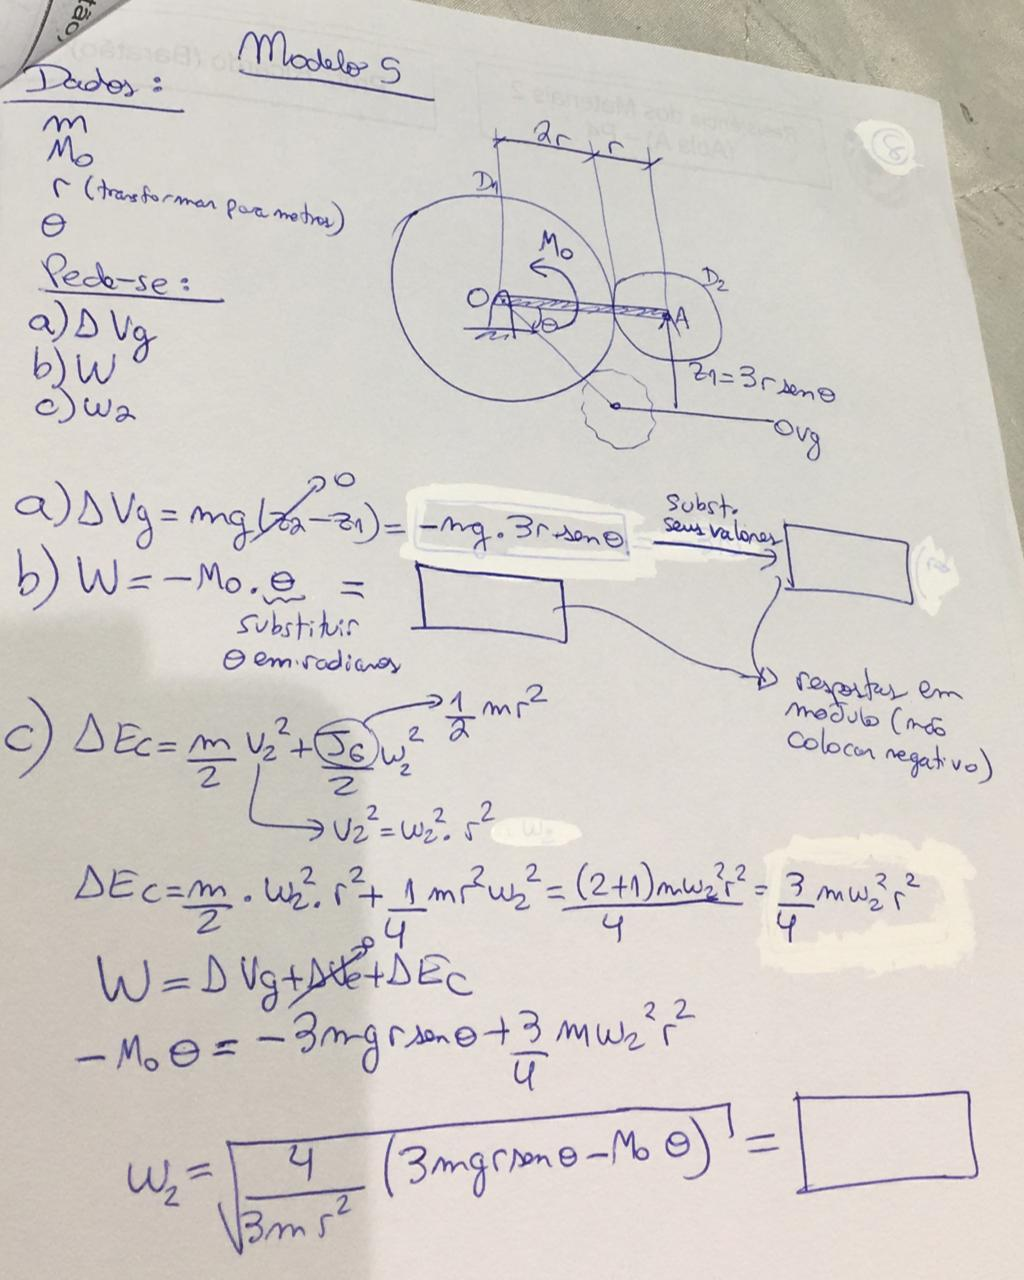 Modelo 5
Dados:
m
Mo
r (transformar para metros)
θ
Pede-se:
a) Δ Vg
b) W
c) ω2
8
2r r
D1
Mo
D2
O
θ
A
Z1 = 3r sen θ
OVg
a) Δ Vg = mg(z2 - z1) = -mg. 3r.sen θ
0
Subst. seus valores
b) W = -Mo. θ =
substituir
θ em radianos
respostas em
módulo (não
colocar negativo)
c) ΔEc = m/2 V2² + JG/2 ω2²
1/2 mr²
V2² = ω2². r²
ΔEc = m/2 . ω2². r² + 1/4 mr²ω2² = (2+1)mω2²r²/4 = 3/4 mω2²r²
W = Δ Vg + ΔVe + ΔEc
0
- Mo θ = -3mgr sen θ + 3/4 mω2²r²
ω2 = √4/3mr² (3mgr sen θ - Mo θ) =